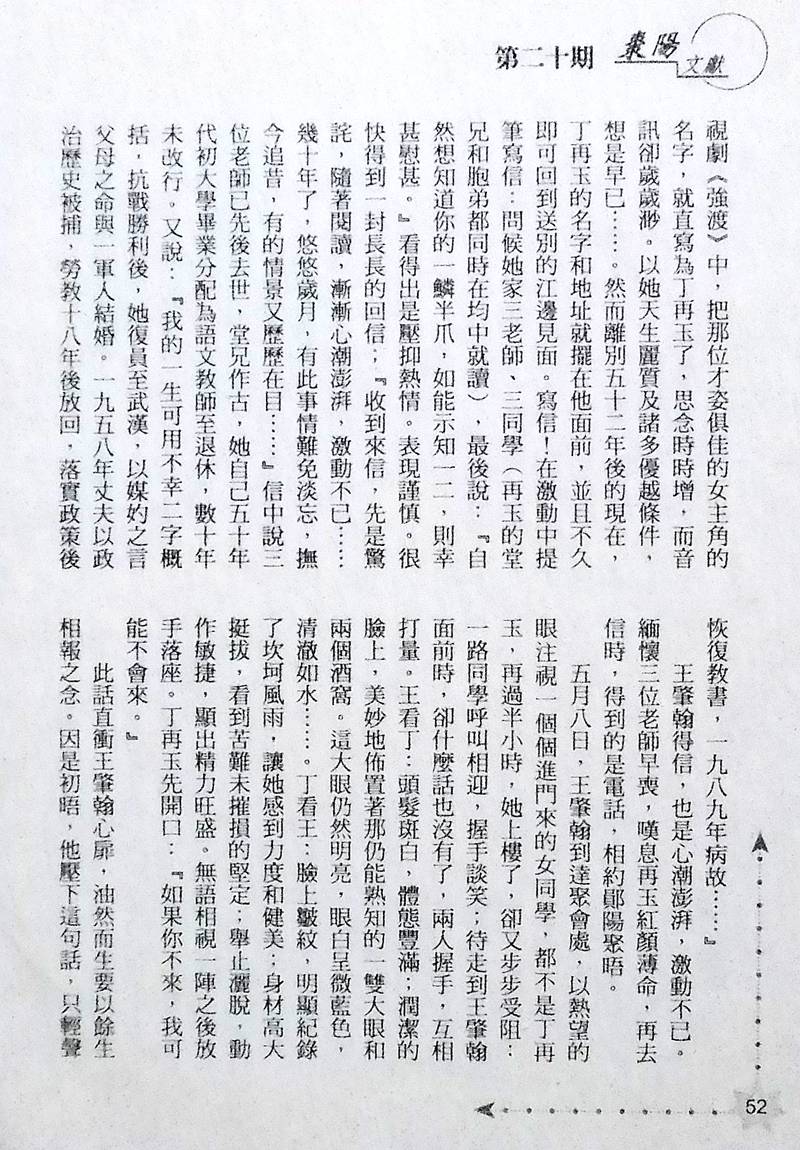 棗陽
文獻
第二十期
視劇《強渡》中，把那位才姿俱佳的女主角的
名字，就直寫為丁再玉了，思念時時增，而音
訊卻歲歲渺。以她天生麗質及諸多優越條件，
想是早已……。然而離別五十二年後的現在，
丁再玉的名字和地址就擺在他面前，並且不久
即可回到送別的江邊見面。寫信！在激動中提
筆寫信：問候她家三老師、三同學（再玉的堂
兄和胞弟都同時在均中就讀），最後說：『自
然想知道你的一鱗半爪，如能示知一二，則幸
甚慰甚。』看得出是壓抑熱情。表現謹慎。很
快得到一封長長的回信；『收到來信，先是驚
詫，隨著閱讀，漸漸心潮澎湃，激動不已……
幾十年了，悠悠歲月，有此事情難免淡忘，撫
今追昔，有的情景又歷歷在目……』信中說三
位老師已先後去世，堂兄作古，她自己五十年
代初大學畢業分配為語文教師至退休，數十年
未改行。又說：『我的一生可用不幸二字概
括，抗戰勝利後，她復員至武漢，以媒妁之言
父母之命與一軍人結婚。一九五八年丈夫以政
治歷史被捕，勞教十八年後放回，落實政策後
恢復教書，一九八九年病故……』
王肇翰得信，也是心潮澎湃，激動不已。
緬懷三位老師早喪，嘆息再玉紅顏薄命，再去
信時，得到的是電話，相約鄖陽聚晤。
五月八日，王肇翰到達聚會處，以熱望的
眼注視一個個進門來的女同學，都不是丁再
玉，再過半小時，她上樓了，卻又步步受阻：
一路同學呼叫相迎，握手談笑；待走到王肇翰
面前時，卻什麼話也沒有了，兩人握手，互相
打量。王看丁：頭髮斑白，體態豐滿；潤潔的
臉上，美妙地佈置著那仍能熟知的一雙大眼和
兩個酒窩。這大眼仍然明亮，眼白呈微藍色，
清澈如水……。丁看王：臉上皺紋，明顯紀錄
了坎坷風雨，讓她感到力度和健美；身材高大
挺拔，看到苦難未摧損的堅定；舉止灑脫，動
作敏捷，顯出精力旺盛。無語相視一陣之後放
手落座。丁再玉先開口：『如果你不來，我可
能不會來。』
此話直衝王肇翰心扉，油然而生要以餘生
相報之念。因是初晤，他壓下這句話，只輕聲
52